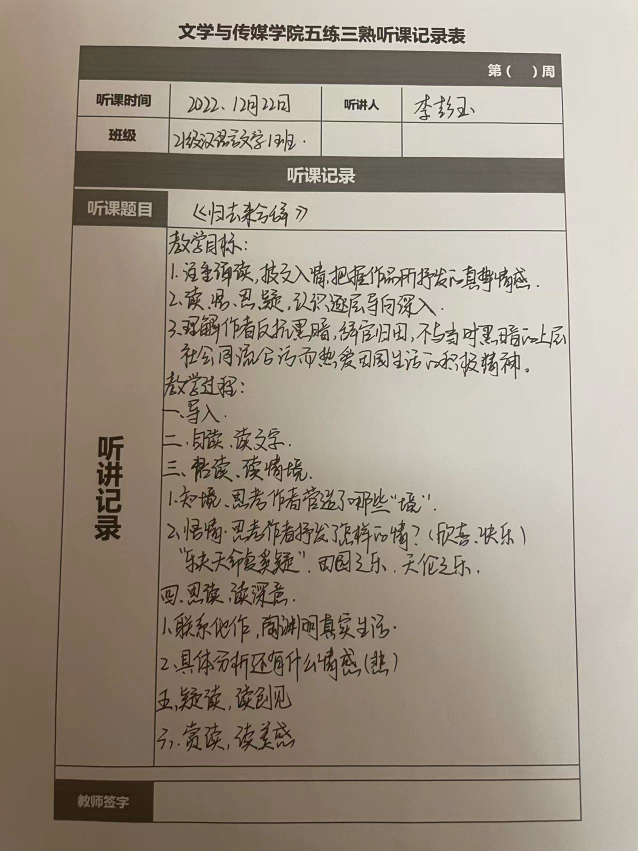 文学与传媒学院五练三熟听课记录表
第（ ）周
听课时间 2022、12月22日 听讲人 李彭玉
班级 21级汉语言文学1班.
听课记录
听课题目 《归去来兮辞》
听讲记录
教学目标：
1.注重诵读，披文入情，把握作品所抒发的真挚情感.
2.读、悟、思、疑，认识逐层导向深入.
3.理解作者反抗黑暗，辞官归田，不与当时黑暗的上层
社会同流合污而热爱田园生活的积极精神。
教学过程：
一、导入.
二、自读、读文字.
三、悟读、读情境.
1.知境、思考作者营造了哪些“境”.
2.悟情.思考作者抒发了怎样的情？（欣喜、快乐）
“乐夫天命复奚疑”.田园之乐.天伦之乐.
四、思读、读深意.
1.联系他作，陶渊明真实生活.
2.具体分析还有什么情感（悲）
五、疑读，读创见
六.赏读，读美感
教师签字